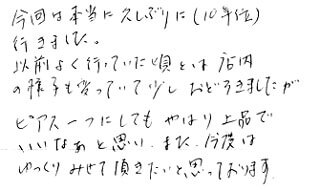 今回は本当に久しぶりに(10年位)
行きました。
以前よく行っていた頃とは店内
の様子も変っていて少しおどろきましたが
ピアス一つにしてもやはり上品で
いいなあと思い、また、今後は
ゆっくりみせて頂きたいと思っております